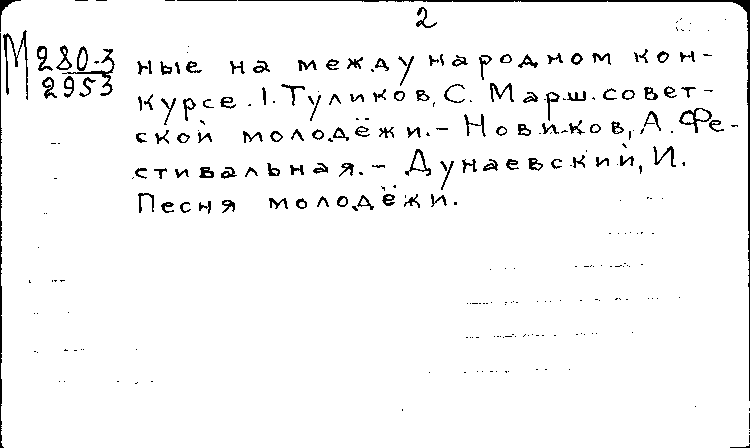 2
М 280-3
2953
ные на международном кон-
курсе. 1. Туликов, С. Марш совет-
ской молодёжи.- Новиков, А. Фе-
стивальная.- Дунаевский, И.
Песня молодёжи.